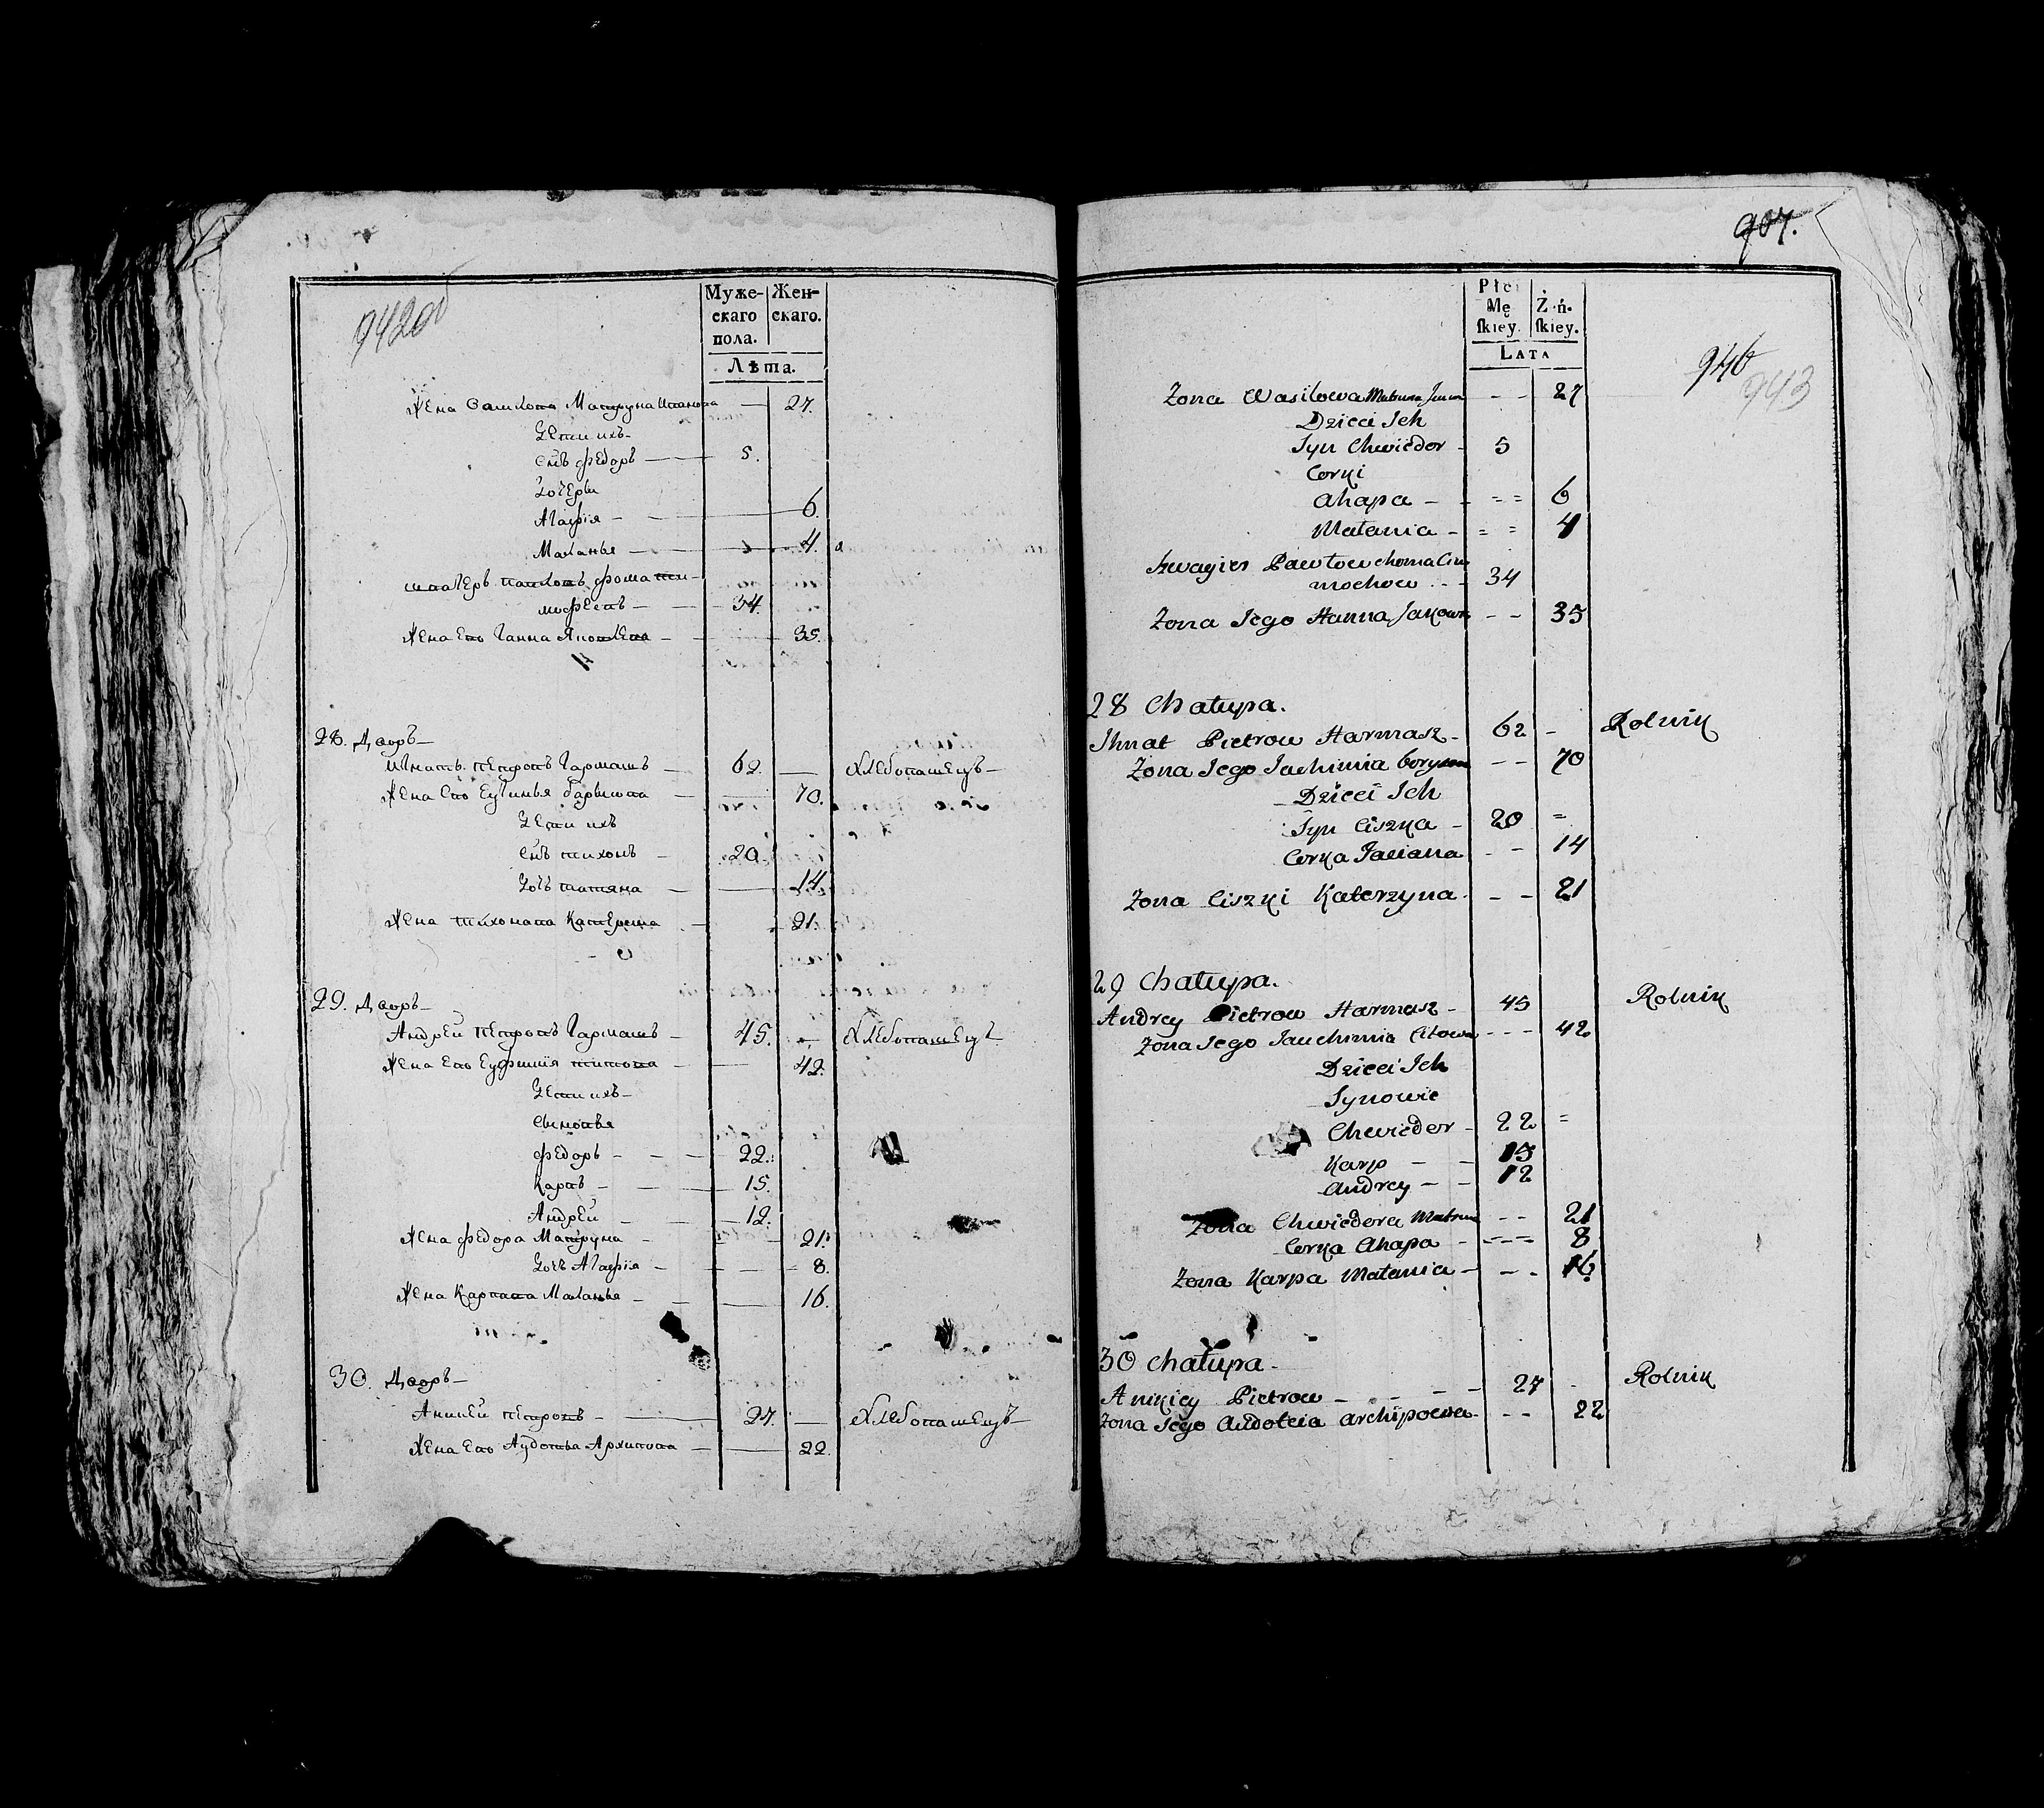 942об
Муже-
скаго
пола.
Жен-
скаго.
Лѣта.
Жена Матруна 27.
Дети ихъ
Снъ Федоръ 5.
Дочери
Агафія 6.
Маланья 4.
Фома Ти-
мофеевъ 34.
Жена Его Ганна Яковлева 35.
28. Дворъ
Игнатъ Петровъ Гармашъ 62. Хлебопашецъ
Жена Его Борисова 70.
Дети ихъ
Снъ Тихонъ 20.
Дочь Татяна 14.
Жена Тихонава Катерина 21.
29. Дворъ
Андрей Петровъ Гармашъ 45. Хлебопашецъ
Жена Его Еуфимія Титова 42.
Дети ихъ
Сыновья
Федоръ 22.
Карпъ 15.
Андрей 12.
Жена Федора Матруна 21.
Дочь Агафія 8.
Жена Карпава Маланья 16.
30. Дворъ
Аникей Петровъ 27. Хлебопашецъ
Жена Его Аудотья Архипова 22.
907.
946
943
Płci
Mę
ſkiey.
Ż ń-
ſkiey.
LATA
Zona Wasilowa Matruna 27
Dzieci Ich
Syn Chwiedor 5
Corki
Ahapa 6
Małania 4
Szwagier Pawłow Choma Cim
mochow 34
Zona Jego Hanna Jakow 35
28 Chałupa.
Ihnat Pietrow Harmasz 62 Rolnik
Zona Jego Jachimia Borysow 70
Dzieci Ich
Syn Ciszka 20
Corka Taciana 14
Zona Ciszki Katerzyna 21
29 Chałupa.
Andrey Pietrow Harmasz 45 Rolnik
Zona Jego Jauchimia Citowa 42
Dzieci Ich
Synowie
Chwiedor 22
Karp 15
Andrey 12
Zona Chwiedora Matruna 21
Corka Ahapa 8
Zona Karpa Małania 16
30 Chałupa
Anikiey Pietrow 27 Rolnik
Zona Jego Audotcia Archipowa 22